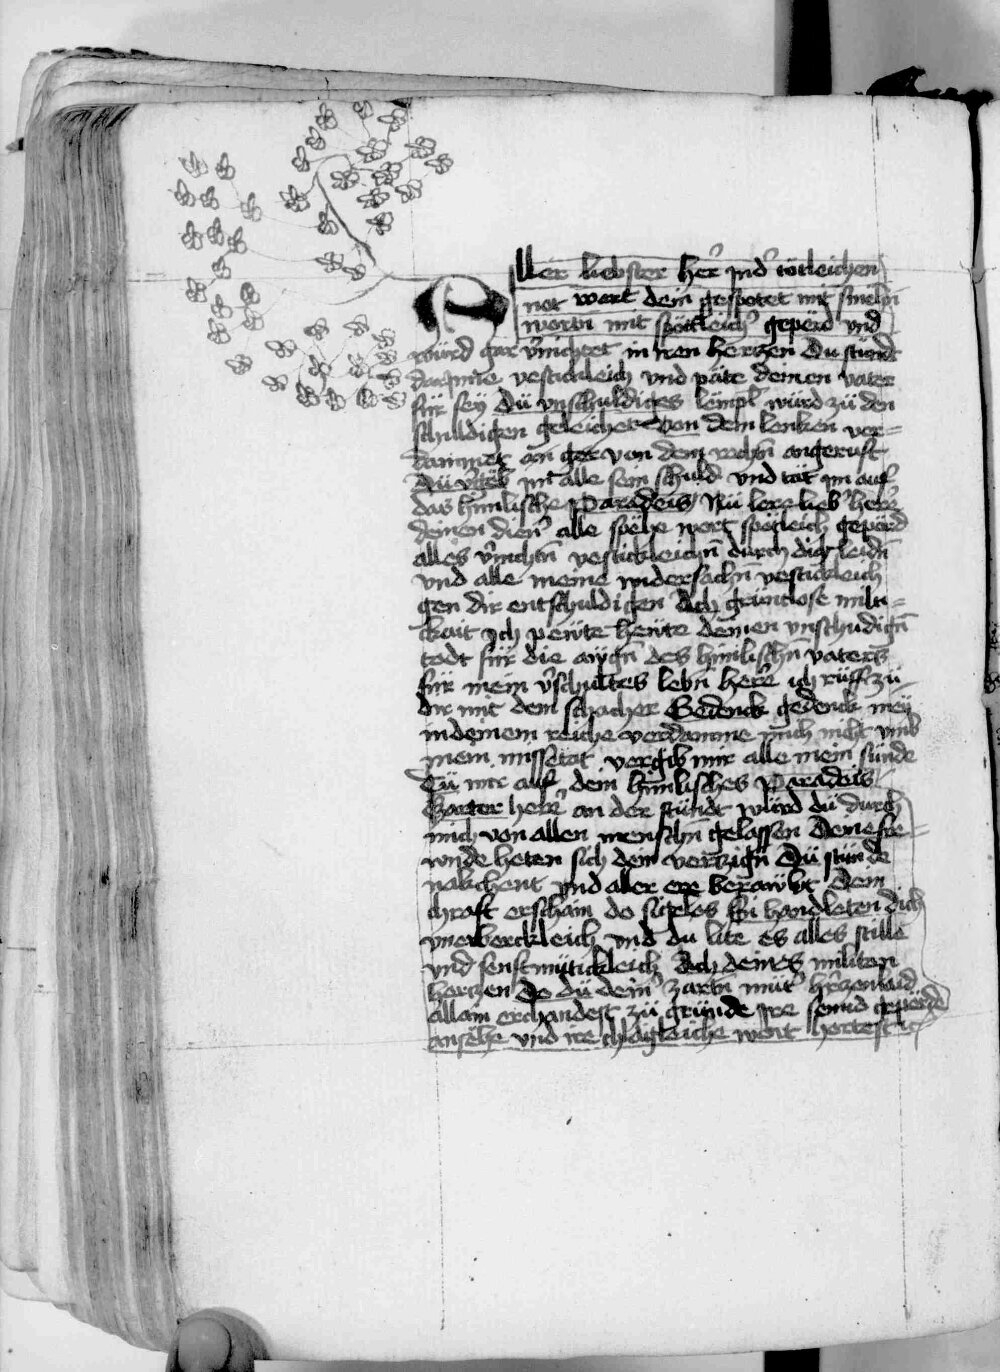 Aller liebster her̄ Jnd' tötleichen
not wart dein gespötet mit smehn̄
wortn̄ mit spötleich' gepërd vnd
würd gar v'nichtet in iren hertzen Du stündt
darynne vestickleich vnd päte deinen vater
für sey Dü vnschuldiges lëmpl würd zü den
schuldigen geleichet von dem lenken ver=
dammet an ger von dem rechtn̄ angeruft
Dü v'gëb jm alle sein schuld vnd tät im auf
das himlische Paradeis Nü lere lieb' her̄e
deinen dien' alle spëhe wort spötleich gepërd
alles v'nichtn̄ vestickleichn̄ durch dich leidn̄
vnd alle meine widersachn̄ vestickleich
gen dir entschuldigen Ach grüntlose milti=
kait Jch pewte hewte deinen vnschudign̄
todt für die awgn̄ des himlischn̄ vaters
für mein v'schultes lebn̄ her̄e ich rüff zü
dir mit dem schacher Gedenck gedenck mey
in deinem reiche verdamme mich nicht vmb
mein missetat vergib mir alle mein sünde
Tü mir auf dem himlisches Paradeis
Zarter her̄e an der stündt würd dü durch
mich von allen menschn̄ gelassen Deine fre=
wnde heten sich dein verzign̄ Dü stünde
nakchent vnd aller ere beraẅbt Dein
chraft erschain do sigelos Si handleten dich
vnerberckleich vnd du lite es alles stille
vnd senftmütickleich Ach deines milten
herczen Do dü dein' zartn̄ müt' h'czenlaid
allain erchandest zü gründe Jre sennd gepërde
ansëhe vnd ire chlägleiche wort hortest